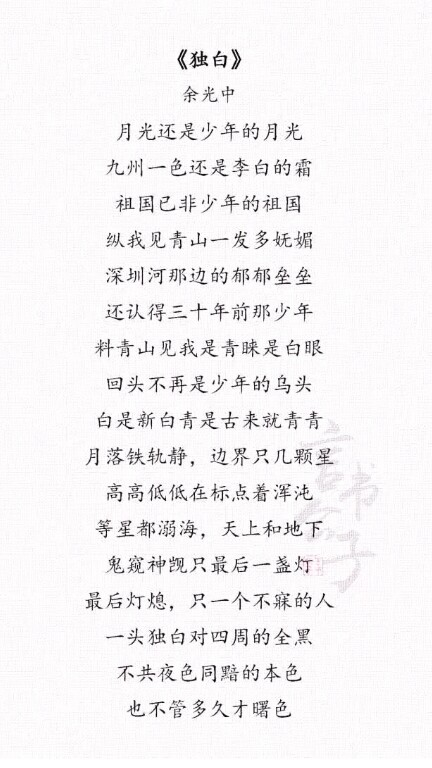 《独白》
余光中
月光还是少年的月光
九州一色还是李白的霜
祖国已非少年的祖国
纵我见青山一发多妩媚
深圳河那边的郁郁垒垒
还认得三十年前那少年
料青山见我是青睐是白眼
回头不再是少年的乌头
白是新白青是古来就青青
月落铁轨静，边界只几颗星
高高低低在标点着浑沌
等星都溺海，天上和地下
鬼窥神觊只最后一盏灯
最后灯熄，只一个不寐的人
一头独白对四周的全黑
不共夜色同黯的本色
也不管多久才曙色